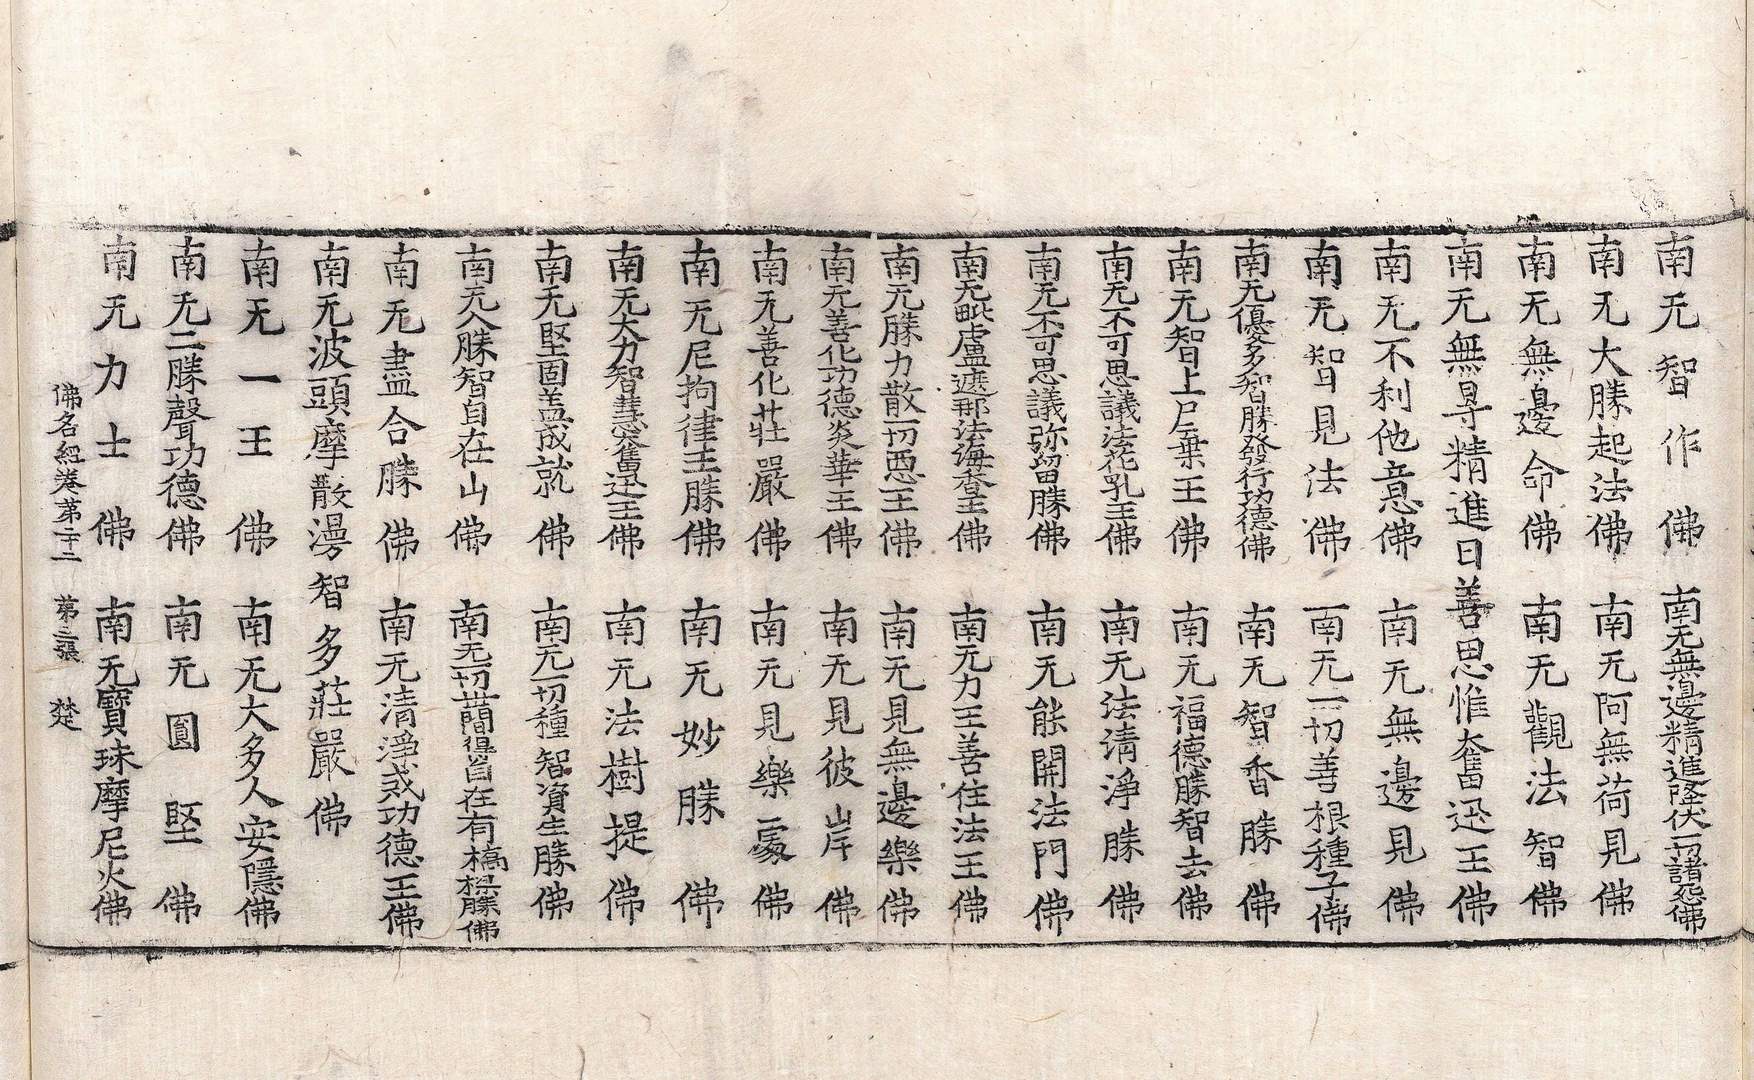 南无智作佛　南无無邊精進降伏一切諸怨佛
南无大勝起法佛　南无阿無荷見佛
南无無邊命佛　南无觀法智佛
南无無㝵精進日善思惟奮迅王佛
南无不利他意佛　南无無邊見佛
南无智見法佛　南无一切善根種子佛
南无優多智勝發行功德佛　南无智香勝佛
南无智上尸棄王佛　南无福德勝智去佛
南无不可思議法花乳王佛　南无法清淨勝佛
南无不可思議弥留勝佛　南无能開法門佛
南无毗盧遮那法海香王佛　南无力王善住法王佛
南无勝力散一切惡王佛　南无見無邊樂佛
南无善化功德炎華王佛　南无見彼岸佛
南无善化莊嚴佛　南无見樂處佛
南无尼拘律王勝佛　南无妙勝佛
南无大力智慧奮迅王佛　南无法樹提佛
南无堅固盖成就佛　南无一切種智資生勝佛
南无人勝智自在山佛　南无一切世間得自在有橋梁勝佛
南无盡合勝佛　南无清淨戒功德王佛
南无波頭摩散漫智多莊嚴佛
南无一王佛　南无大多人安隱佛
南无二勝聲功德佛　南无圓堅佛
南无力士佛　南无寶珠摩尼火佛
佛名經卷第二十二　第三張　楚